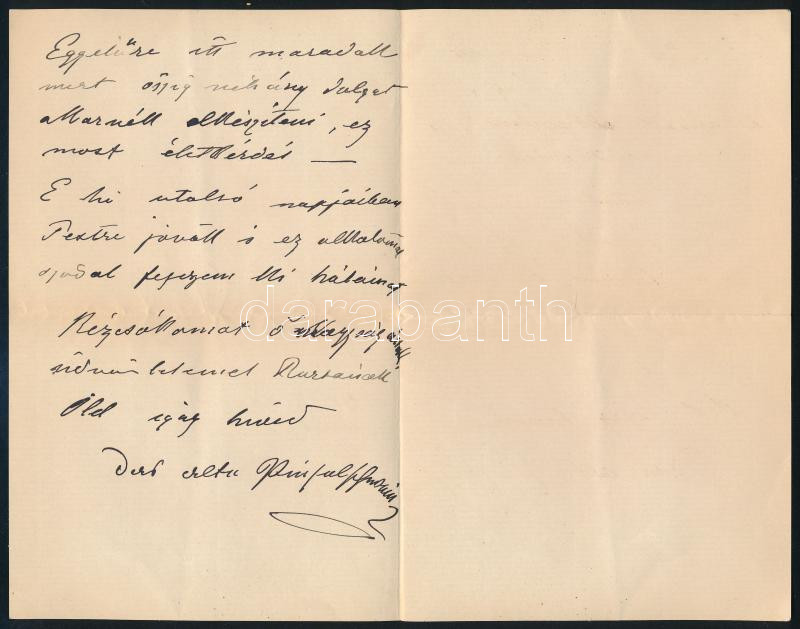 Egyelőre itt maradok
mert őszig néhány dolgot
akarnék elkészíteni, ez
most életkérdés —
E hó utolsó napjaiban
Pestre jövök s ez alkalommal
fejezem ki hálámat
Kézcsókomat ő nagyságának,
üdvözletemet
Ölel igaz híved
der alte
darabanth